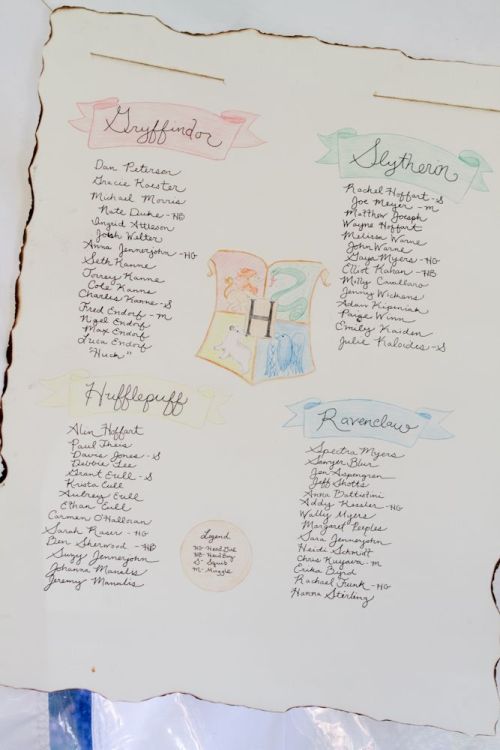 Gryffindor
Dan Peterson
Gracie Koester
Michael Morris
Nate Duke - HB
Ingrid
Josh Welter
Anna Jennerjohn - HG
Seth Kanne
Torrey Kanne
Cole Kanne
Charlie Kanne - S
Fred Endorf - m
Nigel Endorf
Max Endorf
Luca Endorf
"Huck"
Slytherin
Rachel Hoffart - S
Joe Meyer - m
Matthew Joseph
Wayne Hoffart
Melissa Warne
John Warne
Gaya Myers - HG
Elliot Kahan - HB
Molly Cavallaro
Jenny Wickens
Adam Kipeniak
Paige Winn
Emily Kaiden
Julie Kaloides - S
H
Hufflepuff
Alin Hoffart
Paul Theis
Davis Jones - S
Debbie Lee
Grant Eull - S
Krista Eull
Aubrey Eull
Ethan Eull
Carmen O'Halloran
Sarah Ruser - HG
Ben Sherwood - HB
Suzy Jennerjohn
Johanna Manalis
Jeremy Manalis
Ravenclaw
Spectra Myers
Sawyer Blur
Jen Aspengren
Jeff Shotts
Anna Battistini
Addy Kessler - HG
Wally Myers
Margaret Peeples
Sara Jennerjohn
Heidi Schmidt
Chris Kuyava - m
Erika Byrd
Rachael Funk - HG
Hanna Sterling
Legend
HG - Head Girl
HB - Head Boy
S - Squib
M - Muggle